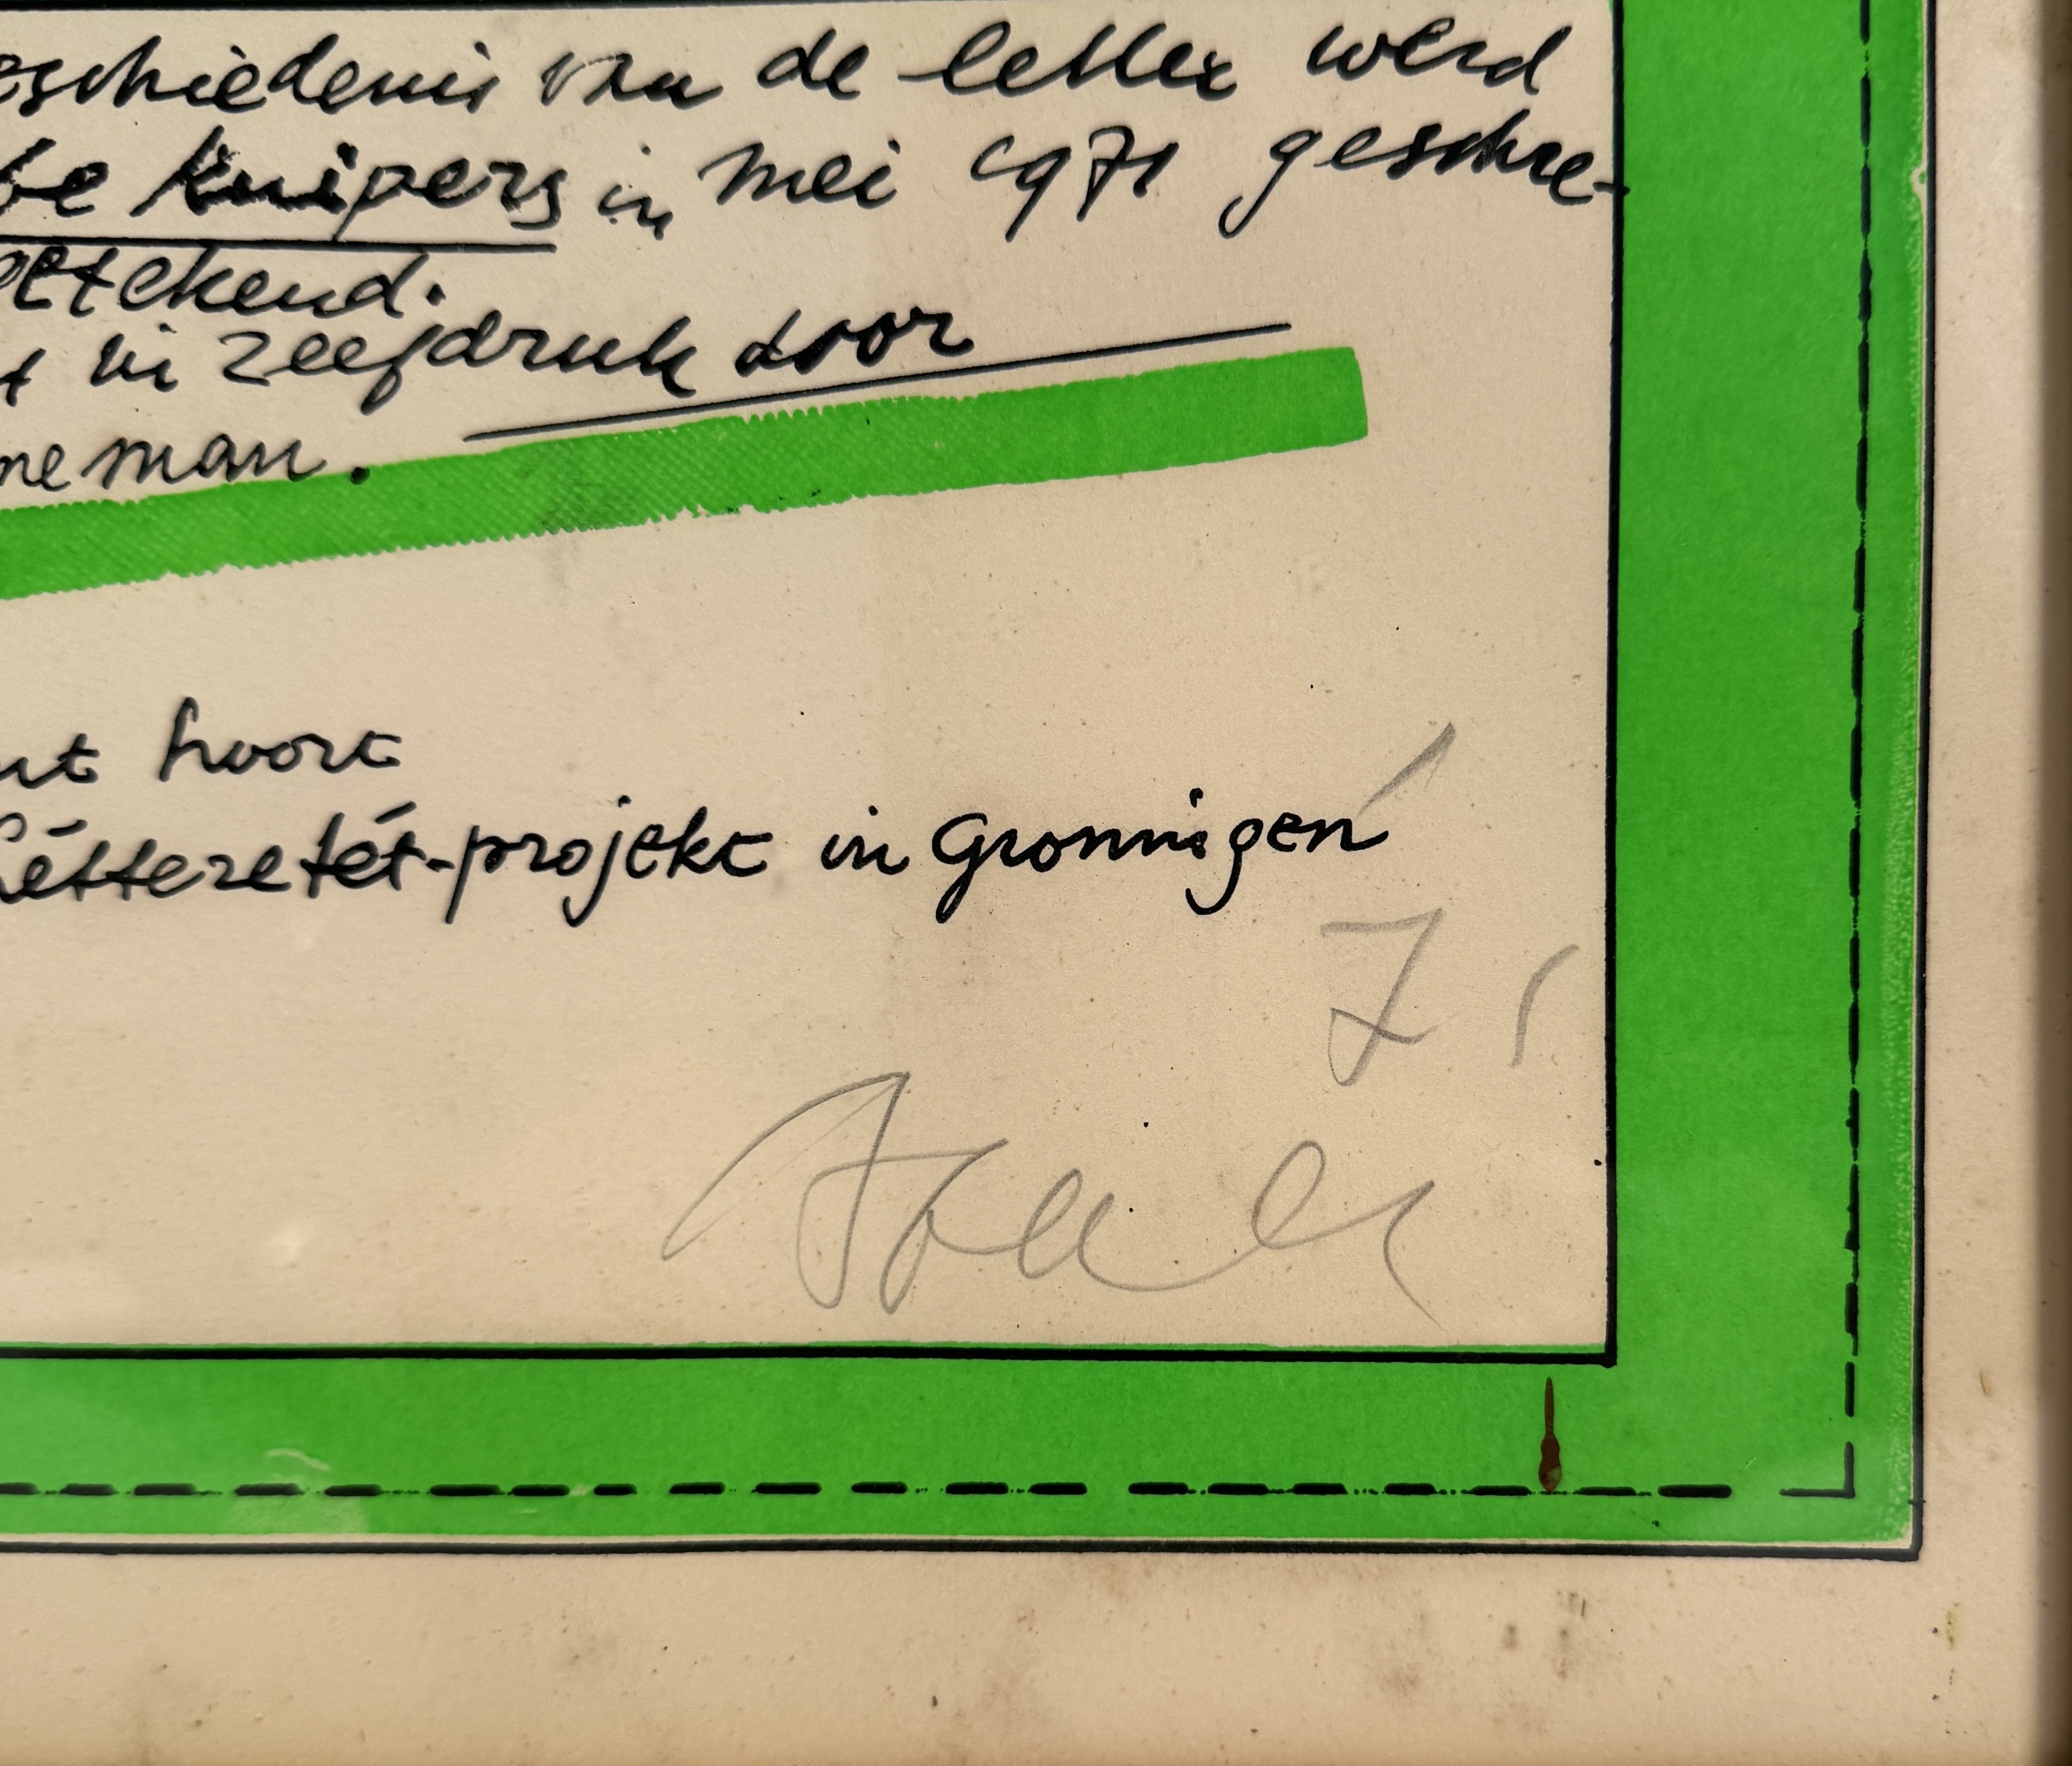 eschiedenis van de letter werd
be Kuipers in mei 1971 geschre-
getekend.
t in zeefdruk door
neman.
nt hoort
Létteretét-projekt in Groningen
71